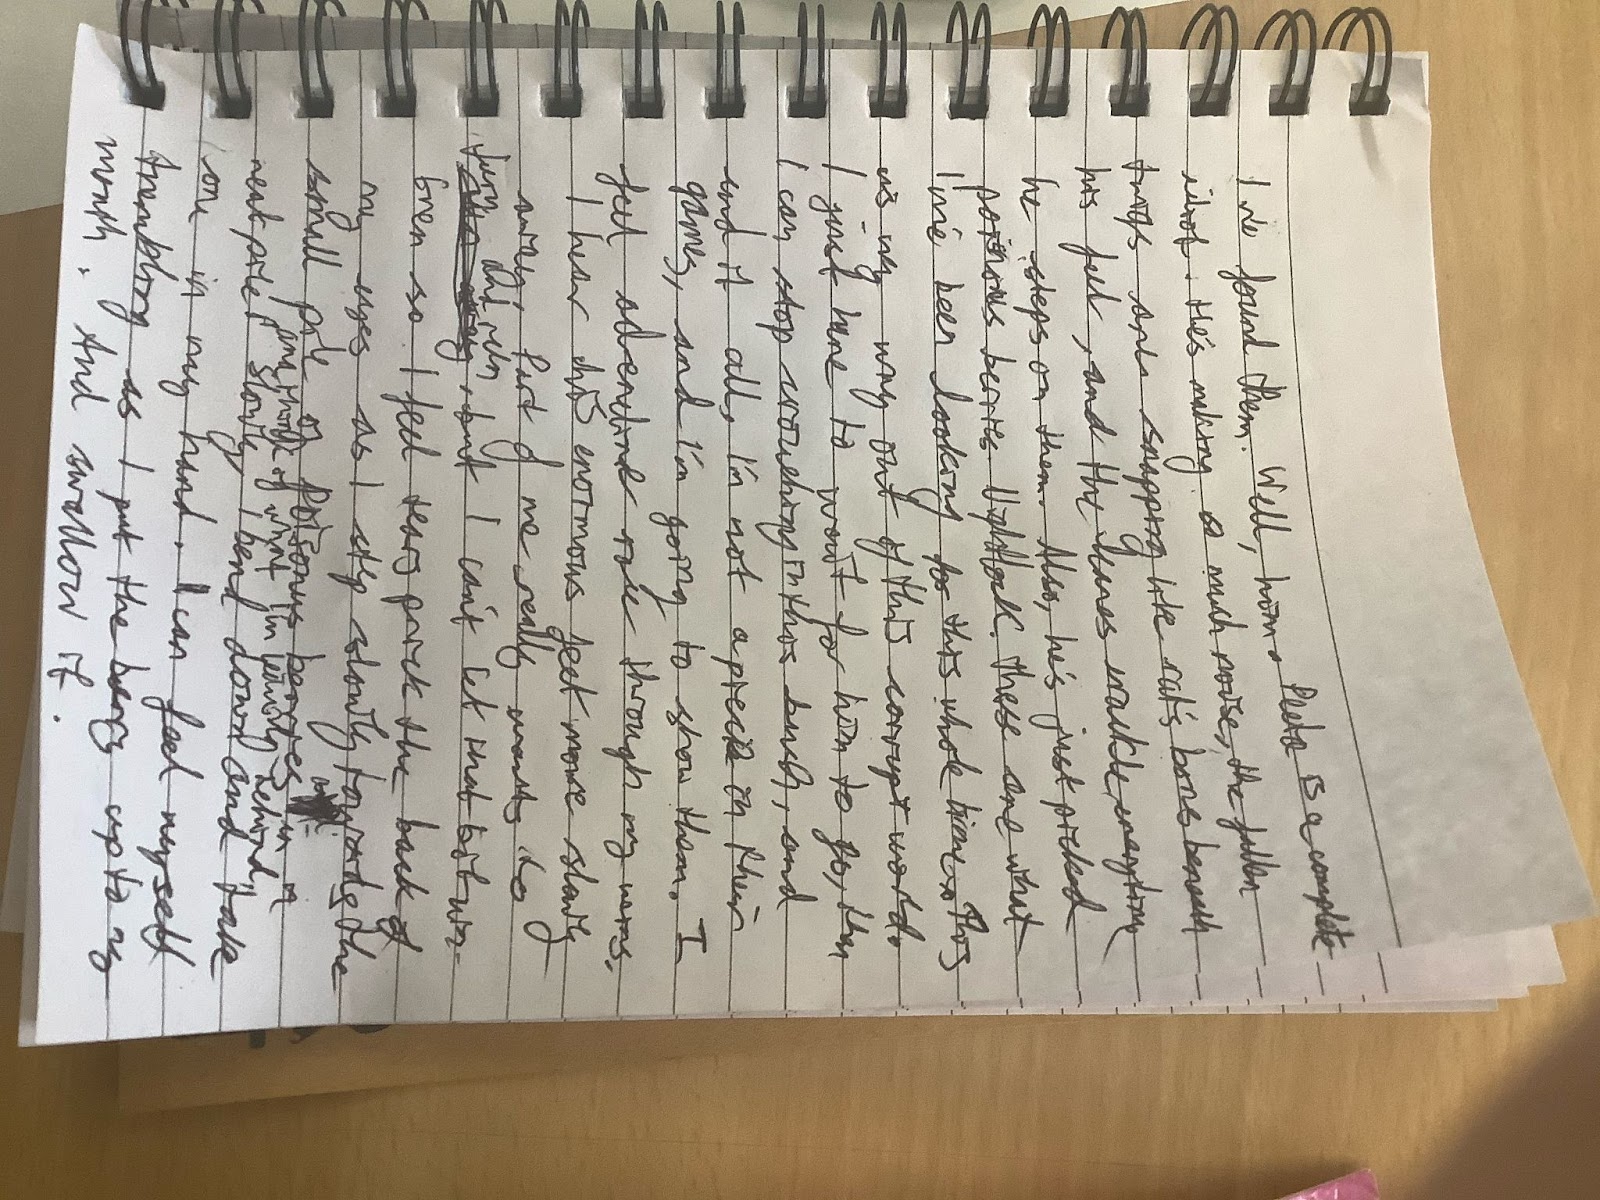 I've found them. Well, him. Peeta is a complete
idiot. He's making so much noise, the fallen
twigs are snapping like rat's bones beneath
his feet, and the leaves crackle, everytime
he steps on them. Also, he's just picked
poisonus berries. Nightlock. These are what
I've been looking for this whole time. This
is my way out of this corrupt world.
I just have to wait for him to go, then
I can stop crouching in this bush, and
end it all. I'm not a piece in their
games, and I'm going to show them. I
feel adrenaline race through my veins.
I hear his enormous feet move slowly
away. Part of me really wants to
turn and run but I can't let that bit win.
Even so I feel tears prick the back of
my eyes as I step slowly towards the
small pile of poisonus berries in a
neat pile. Slowly, I bend down and take
and think of what I'm leaving behind,
one in my hand. I can feel myself
trembling as I put the berry up to my
mouth. And swallow it.